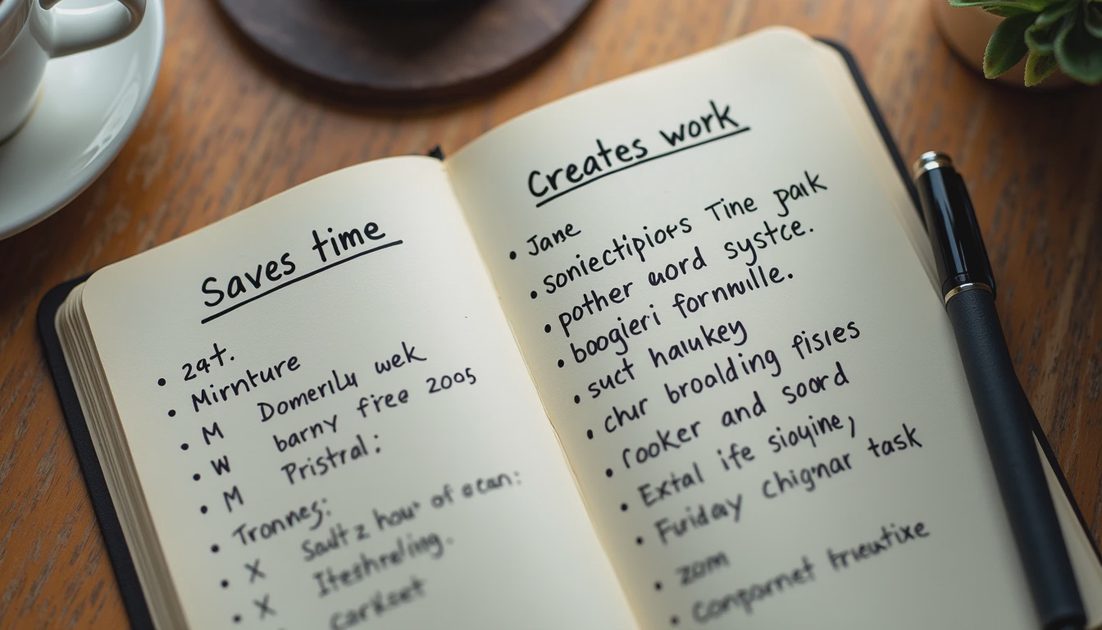 Saves time
• 2at.
• Mirnture
• M Domerilu wek
• W barny free 2005
• M Pristral:
• Tronnes:
• X Sault z hour of ecan:
• X Iteshreling.
carkset
Creates work
• Jane
• soniectipiors Tine park
• pother word systce.
• boogieri fornwille.
• suct haukey
• chur broalding fisies
• rooker and soord
• Extal ife sioyine,
• Fuiday chignar task
• zom
• Conparnet trieutixe